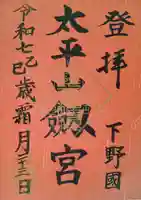 登拝
下野國
太平山劔宮
令和七乙巳歳霜月二十三日